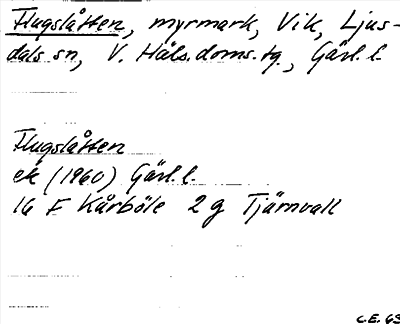 Flugslåtten, myrmark, Vik, Ljus-
dals sn, V. Häls. doms.tg., Gävl. l.
Flugslåtten
ek (1960) Gävl. l.
16 F Kårböle 2 g Tjärnvall
C.E. 63